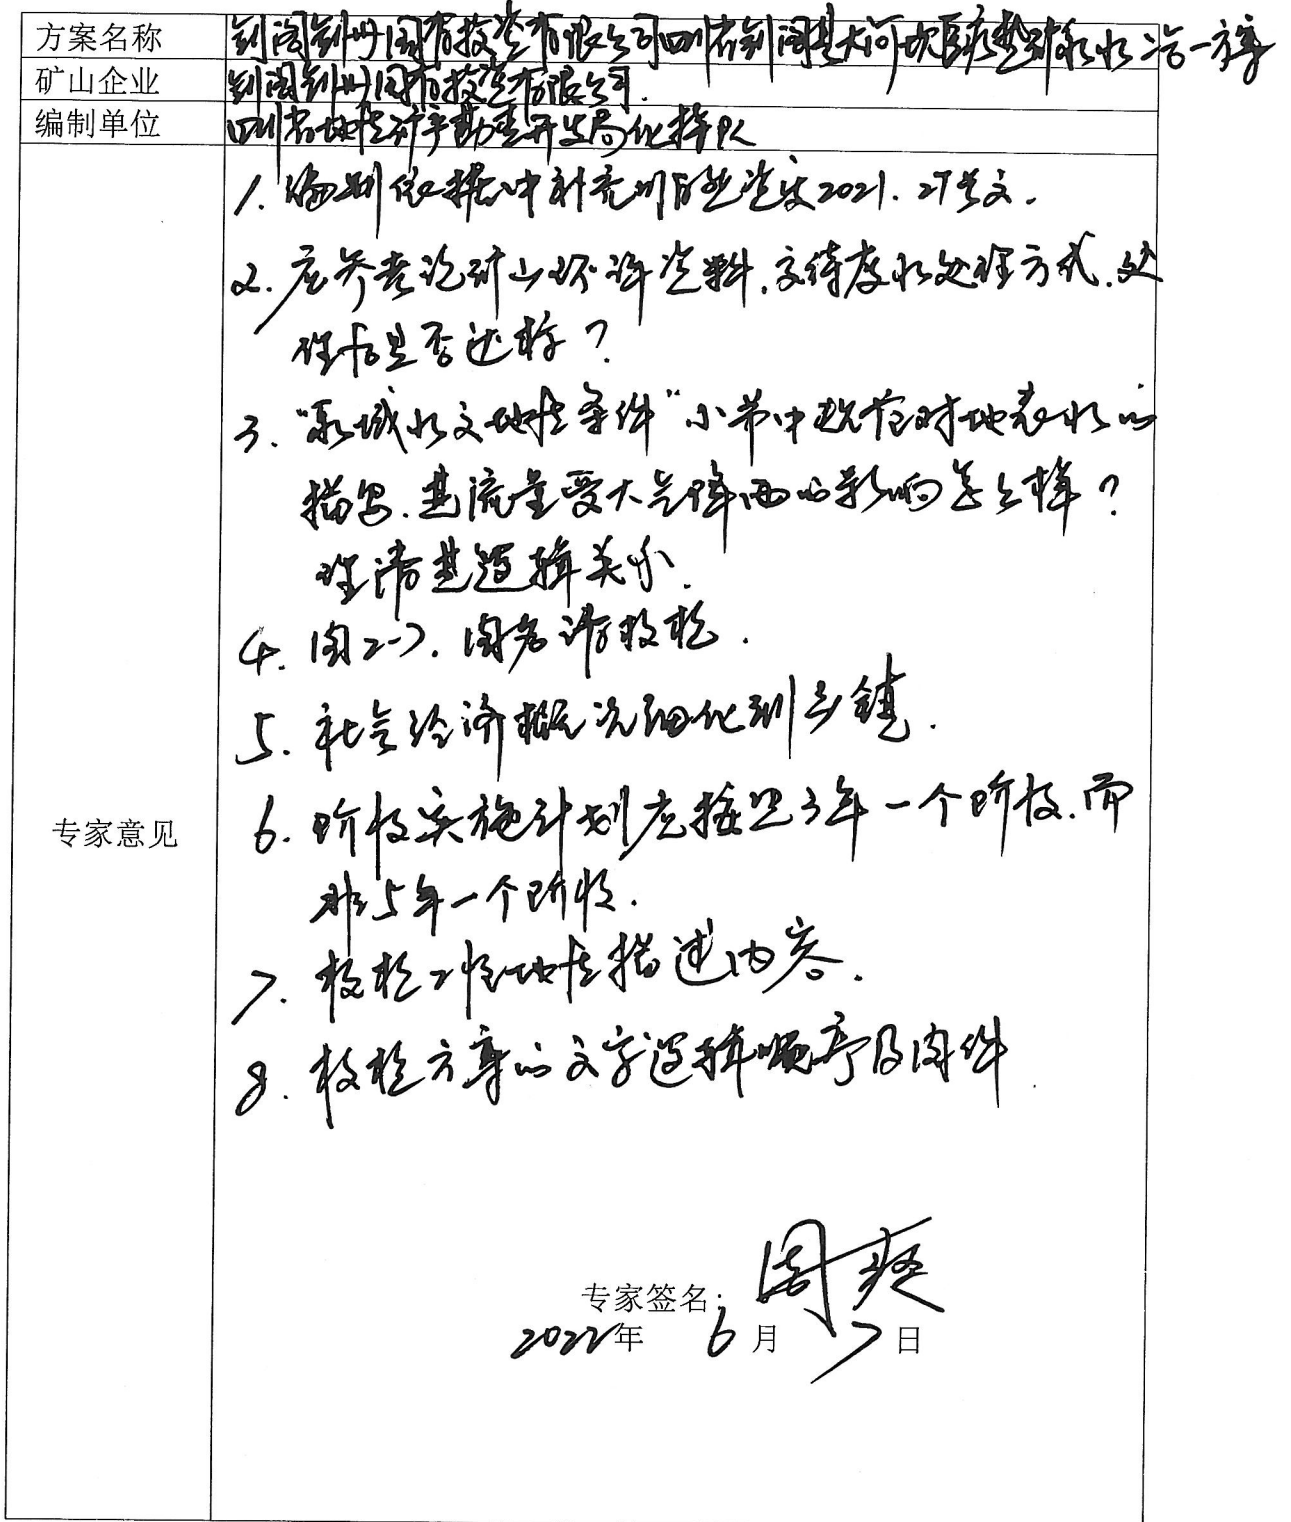 方案名称 剑阁剑州国有投资有限公司四川省剑阁县大河坝医疗热矿泉水二合一方案
矿山企业 剑阁剑州国有投资有限公司.
编制单位 四川省地质矿产勘查开发局化探队
1. 编制依据中补充川自然资发2021.27号文.
2. 应参考该矿山环评资料,交待废水处理方式,处
理后是否达标?
3. “区域水文地质条件”小节中既然对地表水的
描写,其流量受大气降雨的影响怎么样?
理清其逻辑关系.
4. 图2-7,图名请校核.
5. 社会经济概况细化到乡镇.
6. 阶段实施计划应按照3年一个阶段,而
非5年一个阶段.
专家意见
7. 校核工程地质描述内容.
8. 校核方案的文字逻辑顺序及附件.
专家签名: 周
2022年 6月 7日